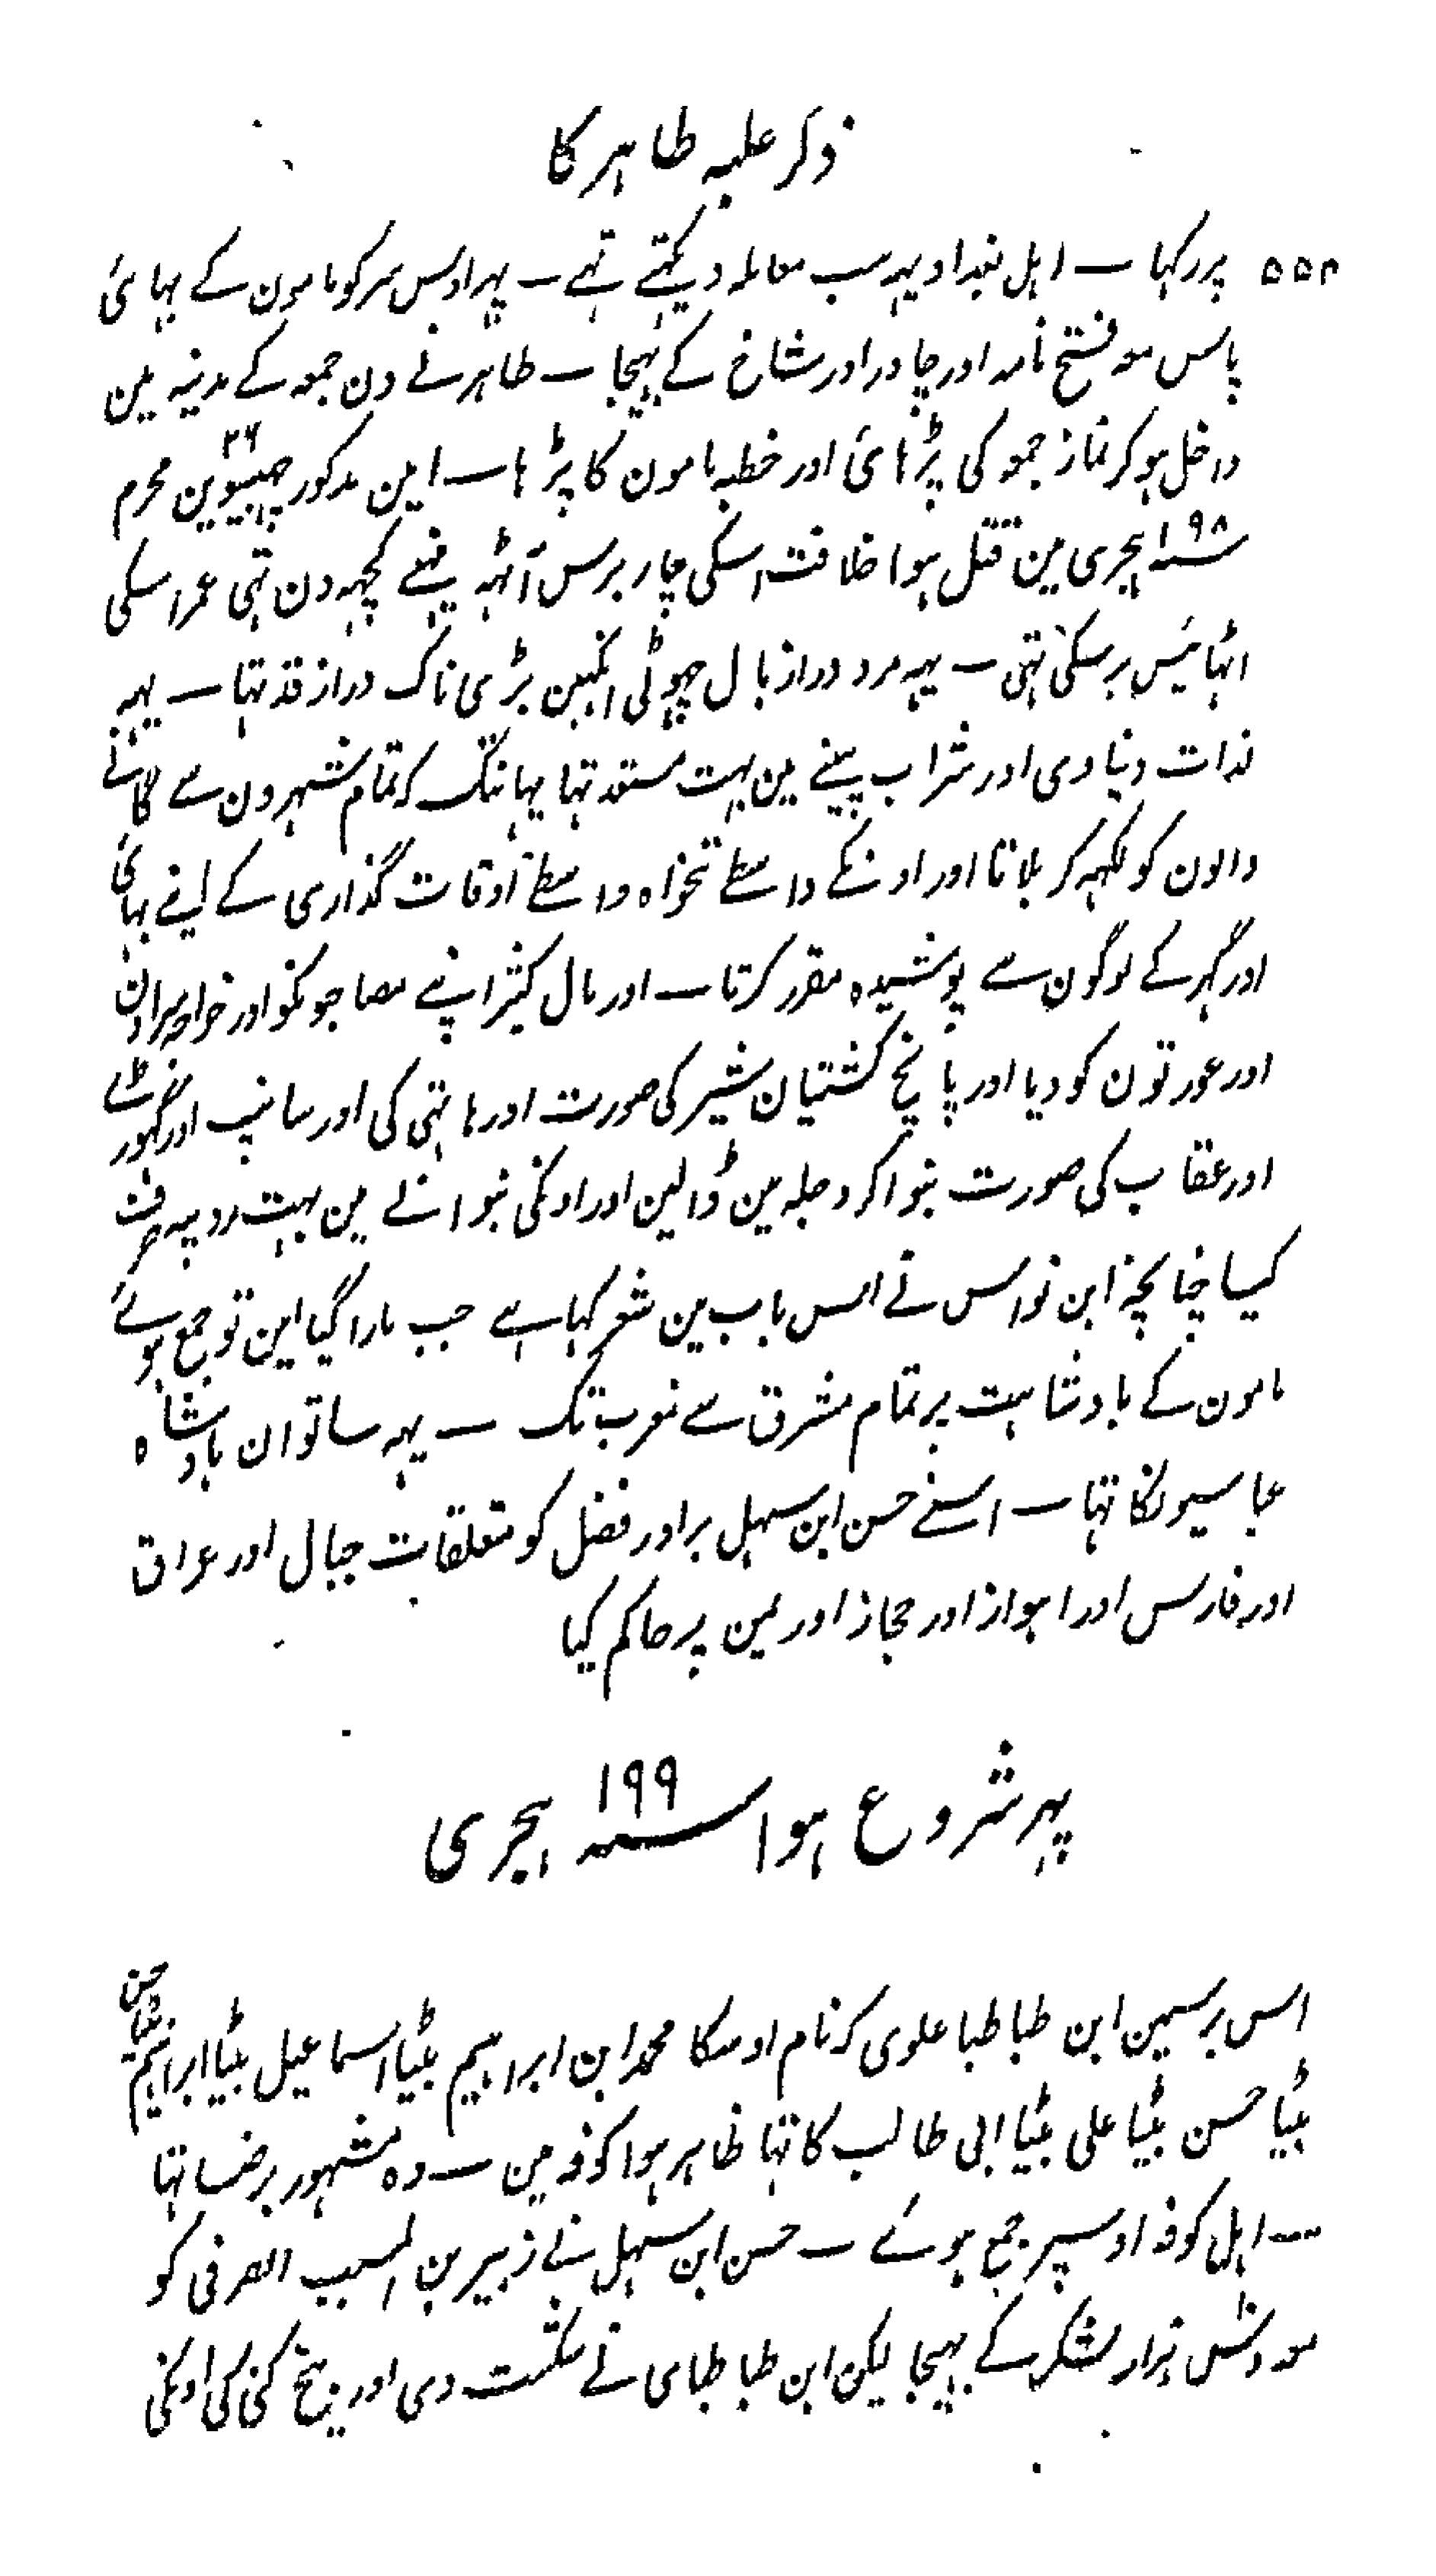 ذکر غلبہ طاہر کا
۵۵۴ پر رکھا ــ اہل بغداد یہہ سب معاملہ دیکہتے تہے ــ پہر اوس سر کو مامون کے بہائی
پاس معہ فتح نامہ اور چادر اور شاخ کے بہیجا ــ طاہر نے دن جمعہ کے مدینہ مین
داخل ہو کر نماز جمعہ کی پڑہائی اور خطبہ مامون کا پڑہا ــ امین مذکور چہبیسوین ۲۶ محرم
سنہ ۱۹۸ ہجری مین قتل ہوا خلافت اسکی چار برس آٹہہ مہینے کچہہ دن تہی عمر اسکی
اٹہائیس برسکی تہی ــ یہہ مرد دراز بال چہوٹی انکہین بڑی ناک دراز قد تہا ــ یہہ
لذات دنیاوی اور شراب پینے مین بہت مستعد تہا یہانتک کہ تمام شہرون سے گانے
والون کو لکہہ کر بلاتا اور اونکے واسطے تنخواہ واسطے اوقات گذاری کے اپنے بہائی
اور گہر کے لوگون سے پوشیدہ مقرر کرتا ــ اور مال کثیر اپنے مصاحبونکو اور خواجہ سراون
اور عورتون کو دیا اور پانچ کشتیان شیر کی صورت اور ہاتہی کی اور سانپ اور گہوڑے
اور عقاب کی صورت بنوا کر دجلہ مین ڈالین اور اونکی بنوانے مین بہت روپیہ صرف
کیا چنانچہ ابن نواس نے اس باب مین شعر کہا ہے جب مارا گیا امین تو جمع ہوئے
مامون کے بادشاہت پر تمام مشرق سے مغرب تک ــ یہہ ساتوان بادشاہ
عباسیونکا تہا ــ اسنے حسن ابن سہل برادر فضل کو متعلقات جبال اور عراق
اور فارس اور اہواز اور حجاز اور یمن پر حاکم کیا
پہر شروع ہوا سنہ ۱۹۹ ہجری
اس برسمین ابن طباطبا علوی کہ نام اوسکا محمد ابن ابراہیم بیٹا اسماعیل بیٹا ابراہیم بیٹا حسن
بیٹا حسن بیٹا علی بیٹا ابی طالب کا تہا ظاہر ہوا کوفہ مین ــ وہ مشہور برضا تہا
ــ اہل کوفہ اوسپر جمع ہوئے ــ حسن ابن سہل نے زہیر بن المسیب الصرفی کو
معہ دنش ہزار لشکر کے بہیجا لیکن ابن طباطبای نے شکست دی اور بیخ کنی کی اونکی